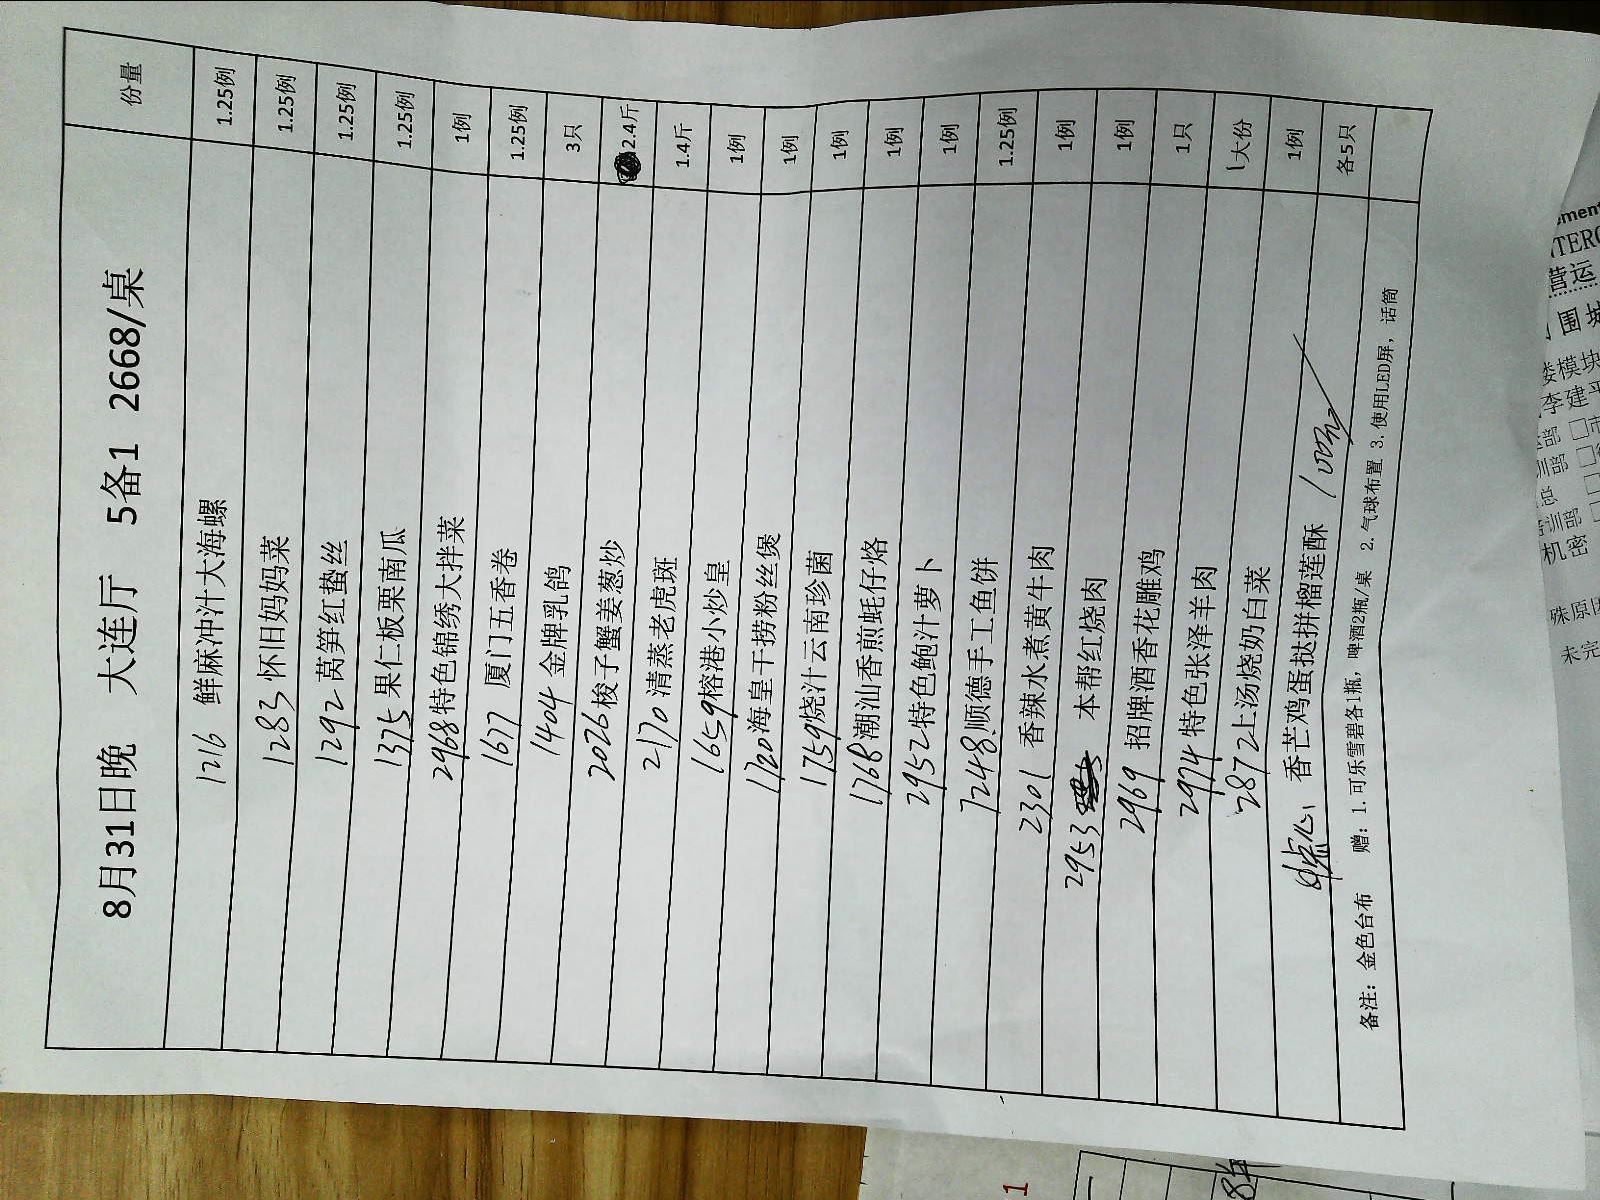 8月31日晚 大连厅 5备1 2668/桌 份量
1216 鲜麻冲汁大海螺 1.25例
1283 怀旧妈妈菜 1.25例
1292 莴笋红蛰丝 1.25例
1375 果仁板栗南瓜 1.25例
2968 特色锦绣大拌菜 1例
1677 厦门五香卷 1.25例
1404 金牌乳鸽 3只
2026 梭子蟹姜葱炒 2.4斤
2170 清蒸老虎斑 1.4斤
1659 榕港小炒皇 1例
1720 海皇干捞粉丝煲 1例
1759 烧汁云南珍菌 1例
1768 潮汕香煎蚝仔烙 1例
2952 特色鲍汁萝卜 1例
7248 顺德手工鱼饼 1例
2301 香辣水煮黄牛肉 1.25例
2953 本帮红烧肉 1例
2969 招牌酒香花雕鸡 1例
2974 特色张泽羊肉 1只
2872 上汤烧奶白菜 1大份
香芒鸡蛋挞拼榴莲酥 1例
各5只
备注： 金色台布 赠：1.可乐雪碧各1瓶，啤酒2瓶/桌 2.气球布置 3.使用LED屏，话筒
营运
围城
楼模块
李建平
训部
培训部
机密
殊原因
未完
1